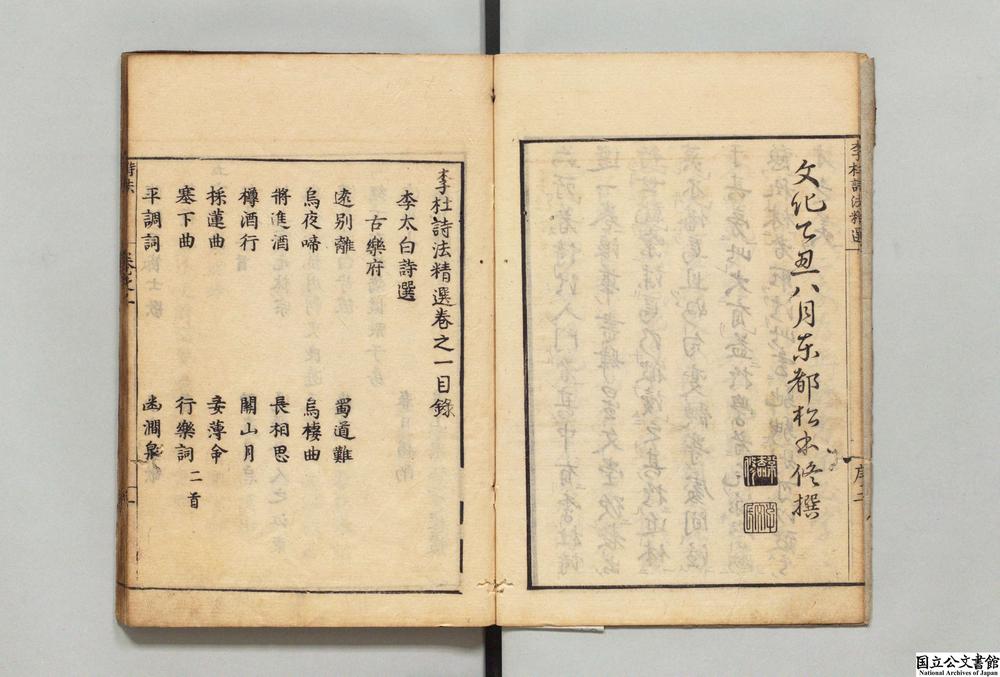 李杜詩法精選
文化乙丑八月東都松本脩撰
序二
李杜詩法精選卷之一目錄
李太白詩選
古樂府
遠別離 蜀道難
烏夜啼 烏棲曲
將進酒 長相思
樽酒行 關山月
採蓮曲 妾薄命
塞下曲 行樂詞二首
平調詞 幽澗泉
卷之一
国立公文書館
National Archives of Japan